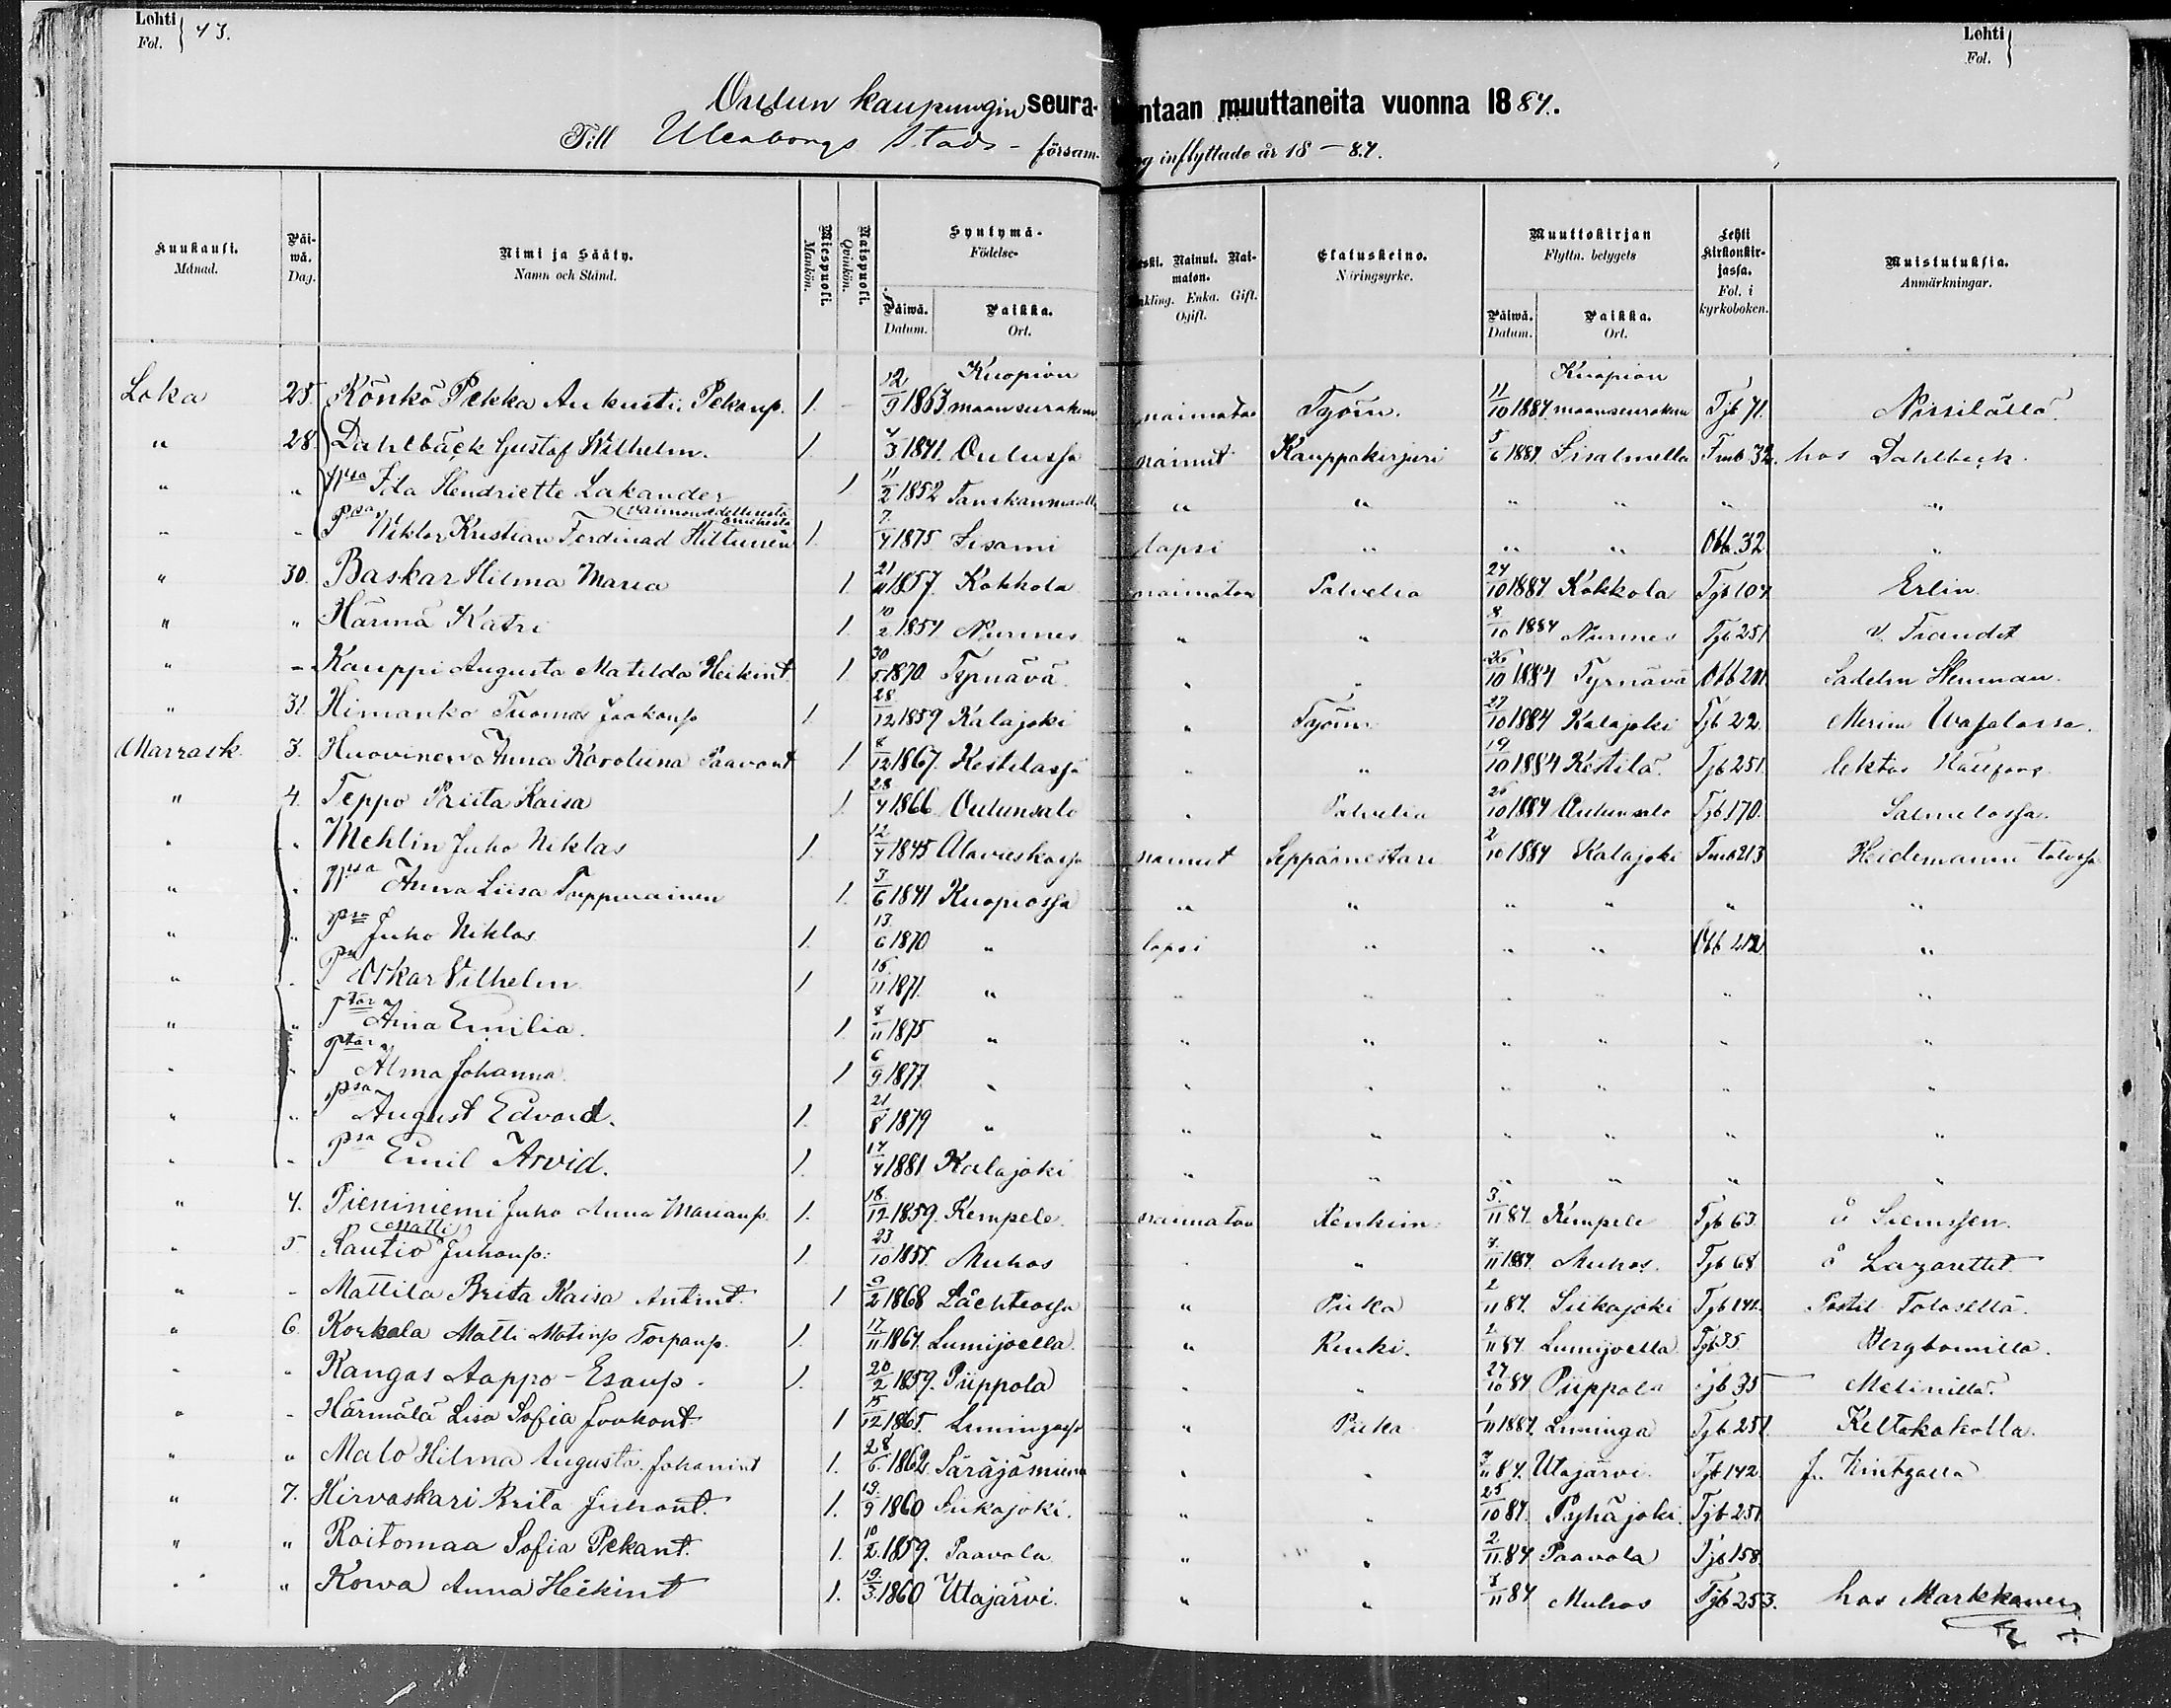 Lohti
Fol. } 43.
Lohti
Fol. }
Oulun kaupungin seura- ntaan muuttaneita vuonna 1884.
Till Uleaborgs Stads - försam- g inflyttade år 18 - 84.
Kuukausi. Månad. | Päi-wä. Dag. | Nimi ja Sääty. Namn och Stånd. | Miespuoli. Mankön. | Naispuoli. Qvinkön. | Syntymä- Födelse- Päiwä. Datum. | Paikka. Ort. | eski. Nainut. Naimaton. nkling. Enka. Gift. Ogift. | Elatuskeino. Näringsyrke. | Muuttokirjan Flyttn. betygets Päiwä. Datum. | Paikka. Ort. | Lehti kirkonkirjassa. Fol. i kyrkoboken. | Muistutuksia. Anmärkningar.
Loka 25. Könkö Pekka Aukusti Pekanp. 1. 12/9 1863 Kuopion maanseurakun naimaton Työm. 11/10 1884 Kuopion maanseurakun Tjb 71. Nissilällä.
" 28 Dahlbäck Gustaf Wilhelm. 1. 4/3 1841. Oulussa nainut Kauppakirjuri 5/6 1884 Iisalmella Tmb 32. hos Dahlbeck.
" " Ida Hendriette Lakander 1 11/2 1852 Tanskanmaalla " " " " " "
" " Psa Wiktor Kristian Ferdinad Hiltunen 1. 7/4 1875 Iisami lapsi " " " Obb. 32 "
" 30. Baskar Hilma Maria 1. 21/11 1857. Kokkola naimaton Palvelia 24/10 1884 Kokkola Tjb 104 Erlin.
" " Härmä Katri 1. 10/2 1854 Nurmes " " 8/10 1884 Nurmes Tjb 251 v. Frandit
" - Kauppi Augusta Matilda Heikint. 1 30/5 1870. Tyrnävä " " 26/10 1884 Tyrnävä Obb 201. Sadelm Henman.
" 31. Himanko Tuomas Jaakonp 1. 28/12 1859 Kalajoki " Työm. 27/10 1884 Kalajoki Tjb 22.
Marrask. 3. Huovinen Anna Karoliina Paavont 1 8/12 1867. Kestilassa " " 19/10 1884 Kestilä. Tjb 251. lektor
" 4. Teppo Priita Kaisa 1. 28/4 1866 Oulunsalo " Palvelia 26/10 1884 Oulunsalo Tjb 170. Salmelassa.
" " Mehlin Juho Niklas 1. 12/4 1845 nainut Seppämestari 2/10 1884 Kalajoki Tmb 213 Heidemannin talossa
" " Anna Liisa Tuppurainen 1. 3/6 1841 Kuopiossa " " " " " "
" " Psa Juho Niklas 1. 13/6 1870 " lapsi " " " Obb 212 "
" " Psa Oskar Vilhelm 1 16/11 1871. " " " " " " "
" " Ptär Aina Emilia. 1. 8/11 1875 " " " " " " "
" " Ptär Alma Johanna. 1 6/9 1877. " " " " " " "
" " Psa August Edvard. 1. 21/8 1879 " " " " " " "
" " Psa Emil Arvid. 1. 14/4 1881. Kalajoki " " " " " "
" 4. Pieniniemi Juho Anna Marianp. 1. 18/12 1859. Kempele. naimaton Renkim. 3/11 84. Kempele Tjb 63.
" 5 Rautio Matti Juhonp: 1. 23/10 1855. Muhos " " 11 1884. Muhos. Tjb 68 å Lazarettet
" - Mattila Brita Kaisa Antint. 1 9/2 1868 " Piika 2/11 84. Siikajoki Tjb 141. Postil. Tolosella.
" 6. Korkala Matti Matinp Torpanp. 1. 17/11 1864. Lumijoella. " Renki. 2/11 84. Lumijoella Tjb 35. Bergbomilla.
" - Kangas Aappo - Esanp. 1. 20/2 1859. Piippola " " 27/10 84 Piippola Tjb 35 Melinillä.
" - Härmälä Lisa Sofia Jookont. 1 15/12 1865. " Piika 1/11 1884. Luminga Tjb 251. Keltakakolla.
" " Malo Hilma Augusta Johanint 1. 28/6 1862. Säräjsniemi " " 3/11 84. Utajärvi. Tjb 142
" 7. Hirvaskari Brita Juhont. 1. 19/9 1860 Siikajoki. " " 25/10 84. Pyhäjoki. Tjb 251
" " Roitomaa Sofia Pekant. 1. 10/2 1859. Paavola " " 2/11 84 Paavola Tjb 158
" " Kowa Anna Heikint 1. 19/3 1860 Utajärvi. " " 11 84 Muhos Tjb 253. hos Markkanen